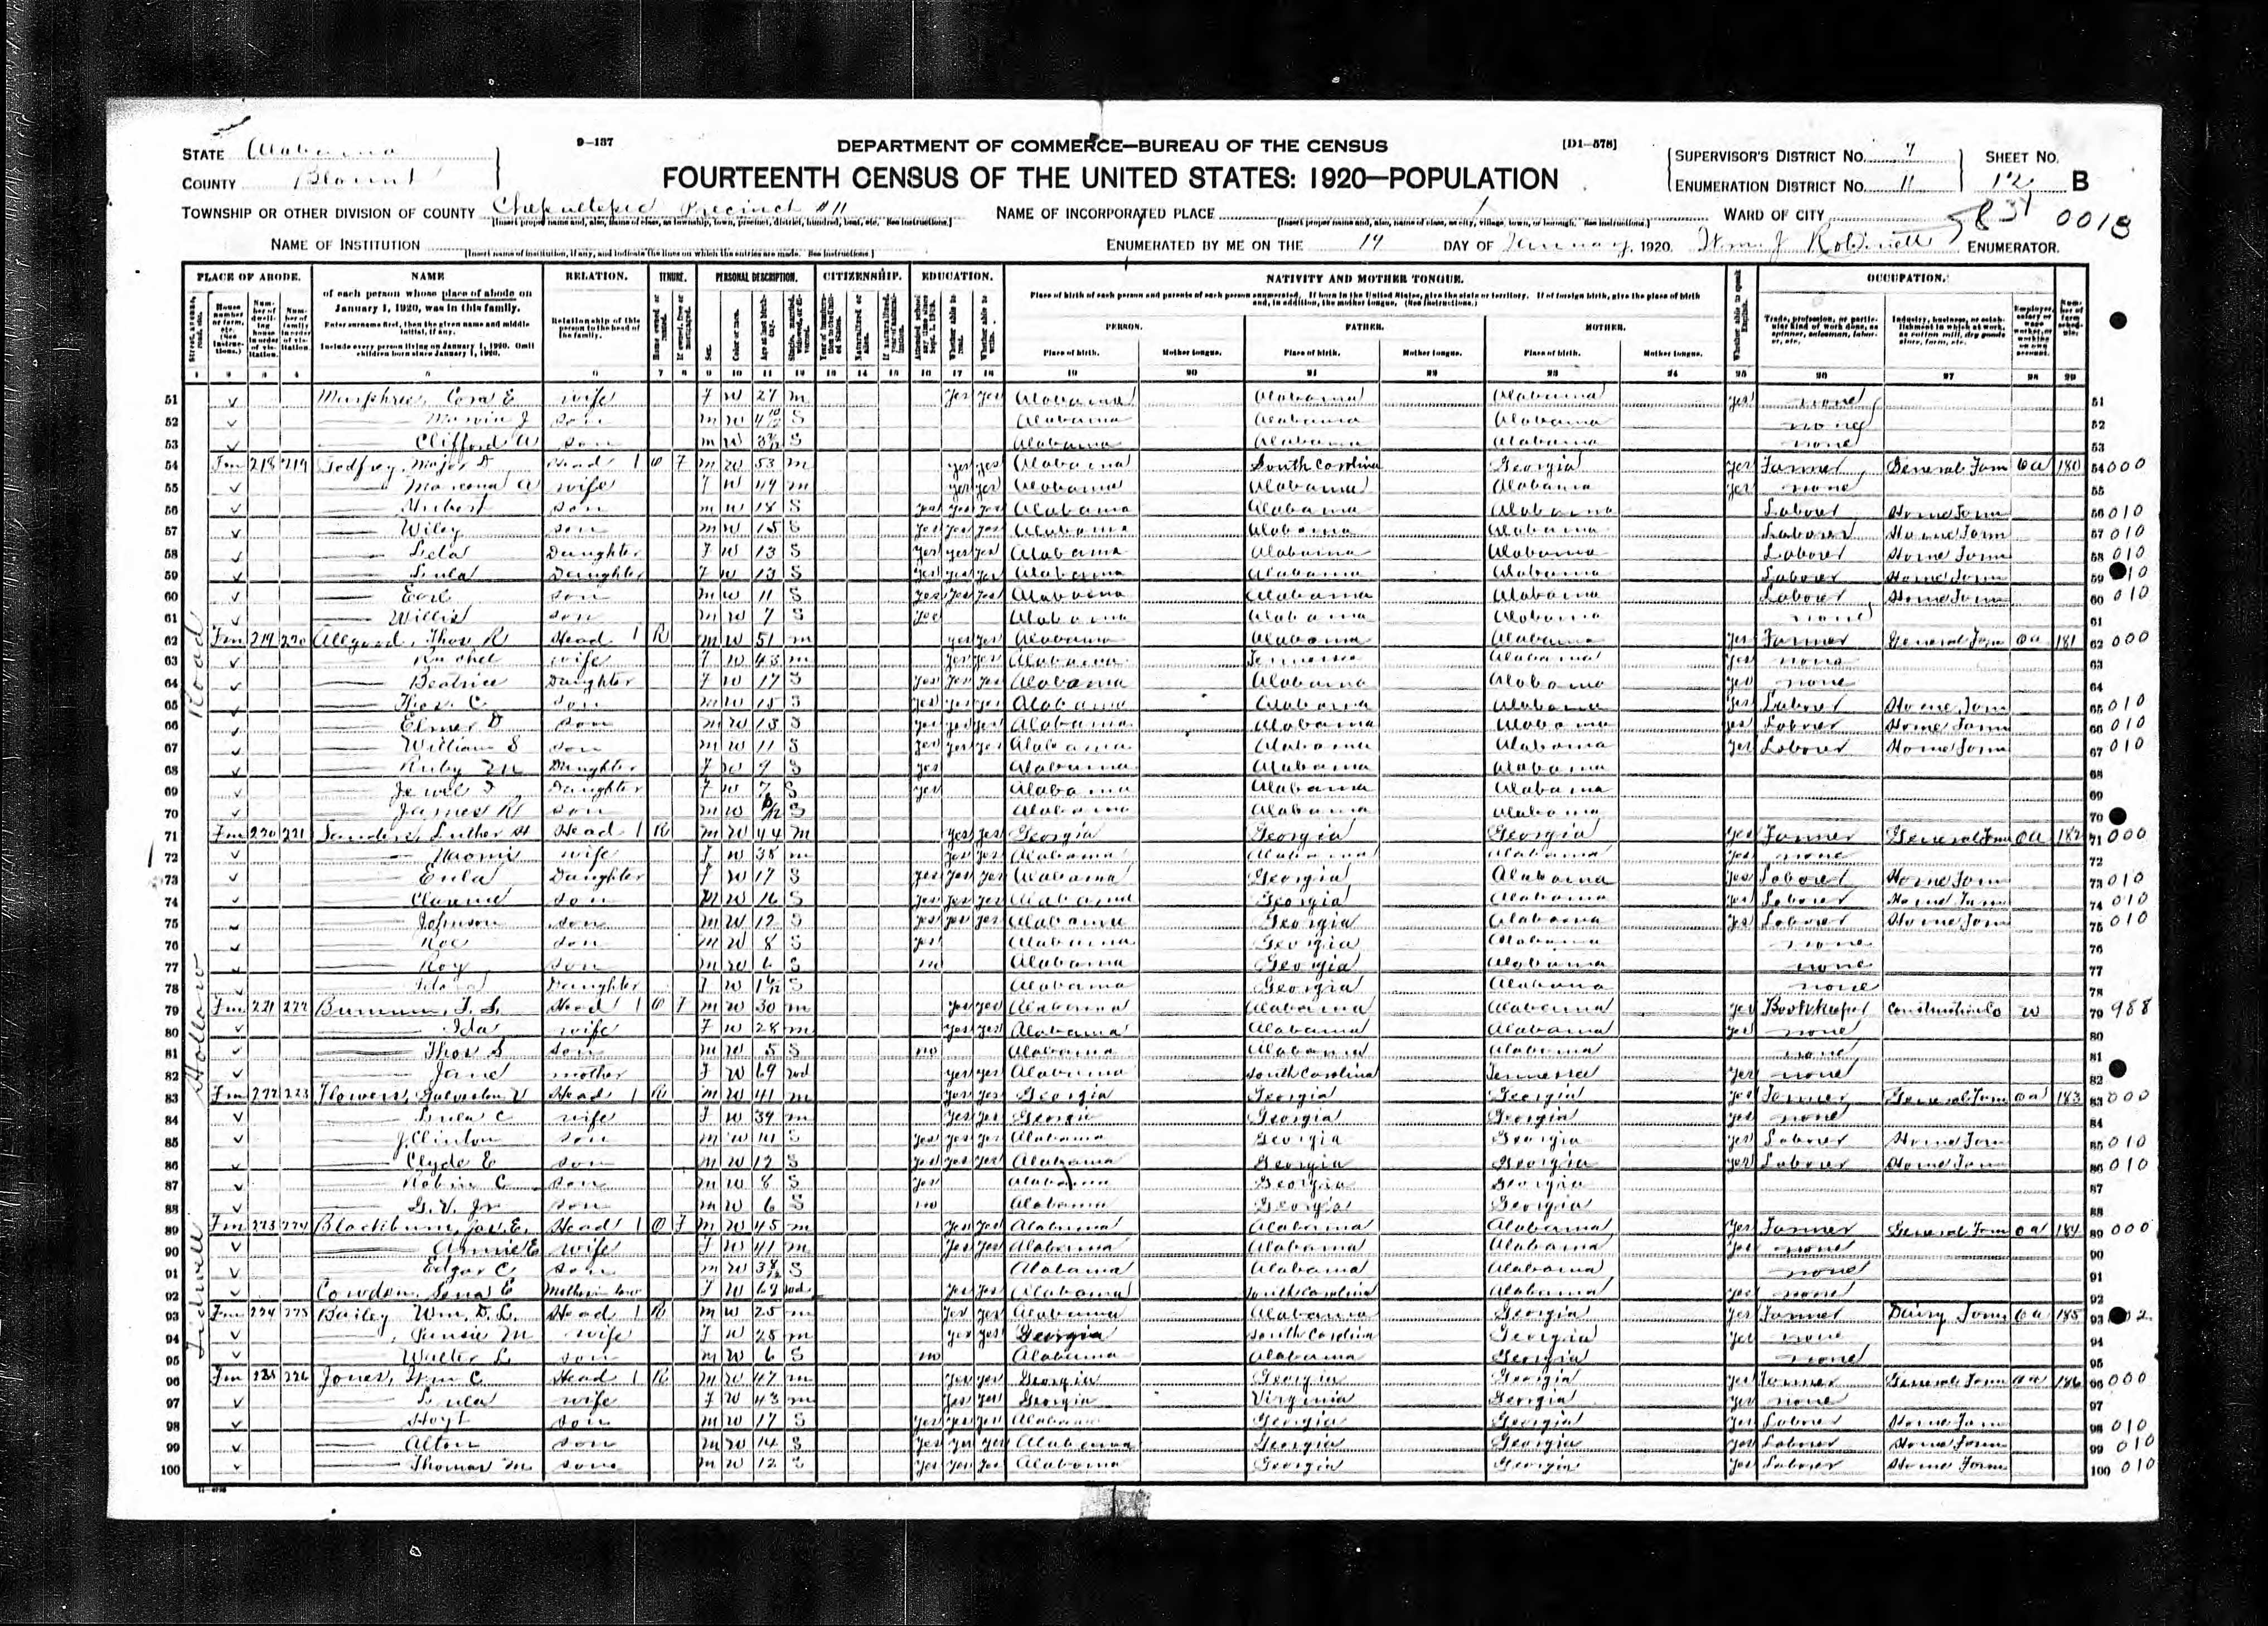 9—137
DEPARTMENT OF COMMERCE—BUREAU OF THE CENSUS
[D1—578]
STATE Alabama
COUNTY Blount
FOURTEENTH CENSUS OF THE UNITED STATES: 1920—POPULATION
SUPERVISOR'S DISTRICT NO. 7
ENUMERATION DISTRICT NO. 11
SHEET NO. 12 B
TOWNSHIP OR OTHER DIVISION OF COUNTY Chepultepec Precinct #11
NAME OF INCORPORATED PLACE
WARD OF CITY
0013
NAME OF INSTITUTION
ENUMERATED BY ME ON THE 19 DAY OF January, 1920. Wm. J. Robinett ENUMERATOR.
PLACE OF ABODE. NAME RELATION. TENURE. PERSONAL DESCRIPTION. CITIZENSHIP. EDUCATION. NATIVITY AND MOTHER TONGUE. OCCUPATION.
of each person whose place of abode on January 1, 1920, was in this family.
Enter surname first, then the given name and middle initial, if any.
Include every person living on January 1, 1920. Omit children born since January 1, 1920.
Relationship of this person to the head of the family.
Place of birth of each person and parents of each person enumerated. If born in the United States, give the state or territory. If of foreign birth, give the place of birth and, in addition, the mother tongue. (See Instructions.)
PERSON. FATHER. MOTHER.
Place of birth. Mother tongue. Place of birth. Mother tongue. Place of birth. Mother tongue.
Tidwell Hollow Road
51 Murphree, Cora E wife F W 27 m yes yes Alabama Alabama Alabama yes none 51
52 Marvin J son m W S Alabama Alabama Alabama none 52
53 Clifford W son m W S Alabama Alabama Alabama none 53
54 Fm 218 219 Godfrey, Major D Head 1 O F m W 53 m yes yes Alabama South Carolina Georgia yes Farmer General Farm OA 180 54 000
55 A wife F W 49 m yes yes Alabama Alabama Alabama yes none 55
56 Hubert son m W 18 S yes yes yes Alabama Alabama Alabama Laborer Home Farm 56 010
57 Wiley son m W 15 S yes yes yes Alabama Alabama Alabama Laborer Home Farm 57 010
58 Lela Daughter F W 13 S yes yes yes Alabama Alabama Alabama Laborer Home Farm 58 010
59 Lula Daughter F W 13 S yes yes yes Alabama Alabama Alabama Laborer Home Farm 59 10
60 Earl son m W 11 S yes yes yes Alabama Alabama Alabama Laborer Home Farm 60 010
61 Willis son m W 7 S yes Alabama Alabama Alabama none 61
62 Fm 219 220 Allgood, Thos R Head 1 R m W 51 m yes yes Alabama Alabama Alabama yes Farmer General Farm OA 181 62 000
63 Rachel wife F W 43 m yes yes Alabama Tennessee Alabama yes none 63
64 Beatrice Daughter F W 17 S yes yes yes Alabama Alabama Alabama yes none 64
65 Thos C son m W 15 S yes yes yes Alabama Alabama Alabama yes Laborer Home Farm 65 010
66 Elmer D son m W 13 S yes yes yes Alabama Alabama Alabama yes Laborer Home Farm 66 010
67 William S son m W 11 S yes yes yes Alabama Alabama Alabama yes Laborer Home Farm 67 010
68 Ruby M Daughter F W 9 S yes Alabama Alabama Alabama 68
69 Jewel Daughter F W 7 S yes Alabama Alabama Alabama 69
70 James R son m W S Alabama Alabama Alabama 70
71 Fm 220 221 Sanders, Luther H Head 1 R m W 44 m yes yes Georgia Georgia Georgia yes Farmer General Farm OA 182 71 000
72 Naomi wife F W 38 m yes yes Alabama Alabama Alabama yes none 72
73 Eula Daughter F W 17 S yes yes yes Alabama Georgia Alabama yes Laborer Home Farm 73 010
74 Clarence son m W 16 S yes yes yes Alabama Georgia Alabama yes Laborer Home Farm 74 010
75 Johnson son m W 12 S yes yes yes Alabama Georgia Alabama yes Laborer Home Farm 75 010
76 Roe son m W 8 S yes Alabama Georgia Alabama none 76
77 Roy son m W 6 S no Alabama Georgia Alabama none 77
78 Daughter F W S Alabama Georgia Alabama none 78
79 Fm 221 222 Bynum, T. S. Head 1 O F m W 30 m yes yes Alabama Alabama Alabama yes Bookkeeper Construction Co W 79 988
80 Ida wife F W 28 m yes yes Alabama Alabama Alabama yes none 80
81 Thos S son m W 5 S no Alabama Alabama Alabama none 81
82 Jane mother F W 69 wd yes yes Alabama South Carolina Tennessee yes none 82
83 Fm 222 223 Flowers, Galveston V Head 1 R m W 41 m yes yes Georgia Georgia Georgia yes Farmer General Farm OA 183 83 000
84 Lula C wife F W 39 m yes yes Georgia Georgia Georgia yes none 84
85 J. Clinton son m W 14 S yes yes yes Alabama Georgia Georgia yes Laborer Home Farm 85 010
86 Clyde E son m W 12 S yes yes yes Alabama Georgia Georgia yes Laborer Home Farm 86 010
87 Robin C son m W 8 S yes Alabama Georgia Georgia 87
88 G. V. Jr son m W 6 S no Alabama Georgia Georgia 88
89 Fm 223 224 Blackburn, Joe E. Head 1 O F m W 45 m yes yes Alabama Alabama Alabama yes Farmer General Farm OA 184 89 000
90 Annie E wife F W 41 m yes yes Alabama Alabama Alabama yes none 90
91 Edgar C son m W S Alabama Alabama Alabama none 91
92 Cowden, Lena E Mother in law F W 69 wd yes yes Alabama South Carolina Alabama yes none 92
93 Fm 224 225 Bailey Wm. D. L. Head 1 R m W 25 m yes yes Alabama Alabama Georgia yes Farmer Dairy Farm OA 185 93 02
94 M wife F W 25 m yes yes Georgia South Carolina Georgia yes none 94
95 Walter L son m W 6 S no Alabama Alabama Georgia none 95
96 Fm 225 226 Jones, Wm C Head 1 R m W 47 m yes yes Georgia Georgia Georgia yes Farmer General Farm OA 186 96 000
97 Lula wife F W 43 m yes yes Georgia Virginia Georgia yes none 97
98 Hoyt son m W 17 S yes yes yes Alabama Georgia Georgia yes Laborer Home Farm 98 010
99 Alton son m W 14 S yes yes yes Alabama Georgia Georgia yes Laborer Home Farm 99 010
100 Thomas M son m W 12 S yes yes yes Alabama Georgia Georgia yes Laborer Home Farm 100 010